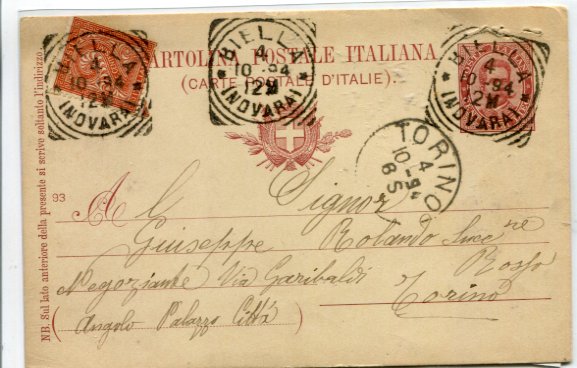 CARTOLINA POSTALE ITALIANA
(CARTE POSTALE D'ITALIE)
BIELLA
4
10-94
12M
(NOVARA)
BIELLA
4
10-94
12M
(NOVARA)
BIELLA
4
10-94
12M
(NOVARA)
TORINO
4
10-94
8S
NB. Sul lato anteriore della presente si scrive soltanto l'indirizzo.
93
Al Signor
Giuseppe Rolando Succre
Negoziante Via Garibaldi Rosso
Torino
(Angolo Palazzo Città)